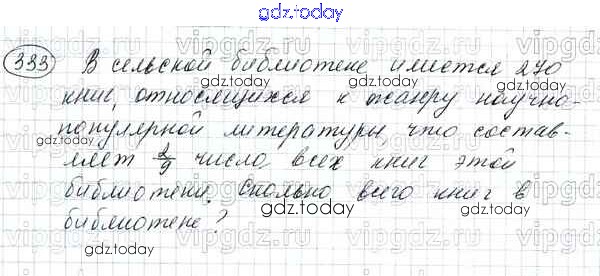 gdz.today
333 В сельской библиотеке имеется 270
книг, относящихся к жанру научно-
популярной литературы, что состав-
ляет 2/9 числа всех книг этой
библиотеки. Сколько всего книг в
библиотеке?
gdz.today
gdz.today
gdz.today
gdz.today
gdz.today